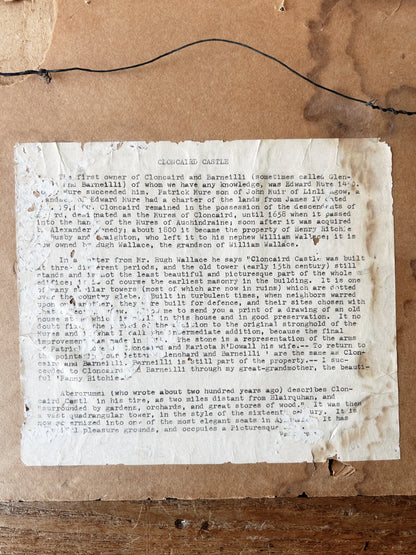 CLONCAIRD CASTLE
The first owner of Cloncaird and Barneilli (sometimes called Glen-
and Barneilli) of whom we have any knowledge, was Edward Mure
Mure succeeded him. Patrick Mure son of John Muir of
of Edward Mure had a charter of the lands from James IV dated
Cloncaird remained in the possession of the descendants of
designated as the Mures of Cloncaird, until 1658 when it passed
into the hands of the Mures of Auchindraine; soon after it was acquired
Alexander Kennedy; about 1800 it became the property of Henry Ritchie
Busby and Craighton, who left it to his nephew William Wallace; it is
now owned by Hugh Wallace, the grandson of William Wallace.
In a letter from Mr. Hugh Wallace he says "Cloncaird Castle was built
at three different periods, and the old tower (early 15th century) still
stands and is not the least beautiful and picturesque part of the whole
edifice; it is of course the earliest masonry in the building. It is one
of many similar towers (most of which are now in ruins) which are dotted
over the country glebe. Built in turbulent times, when neighbors warred
upon one another, they were built for defence, and their sites chosen with
that me to send you a print of a drawing of an old
house in this house and in good preservation. It no
doubt the addition to the original stronghold of the
Mures and in what I call the intermediate addition, because the final
improvement was made in The stone is a representation of the arms
of Patrick Cloncaird and Mariota M'Dowall his wife.-- To return to
the points in your letter: Glenhard and Barneilli are the same as Clon-
caird and Barneilli. Barneilli is still part of the property.-- I suc-
ceeded to Cloncaird and Barneilli through my great-grandmother, the beauti-
ful "Fanny Ritchie."
Abercrummi (who wrote about two hundred years ago) describes Clon-
caird Castle in his time, as two miles distant from Blairquhan, and
"surrounded by gardens, orchards, and great stores of wood." It was then
a vast quadrangular tower, in the style of the sixteenth century. It is
now modernized into one of the most elegant seats in It has
pleasure grounds, and occupies a Picturesque